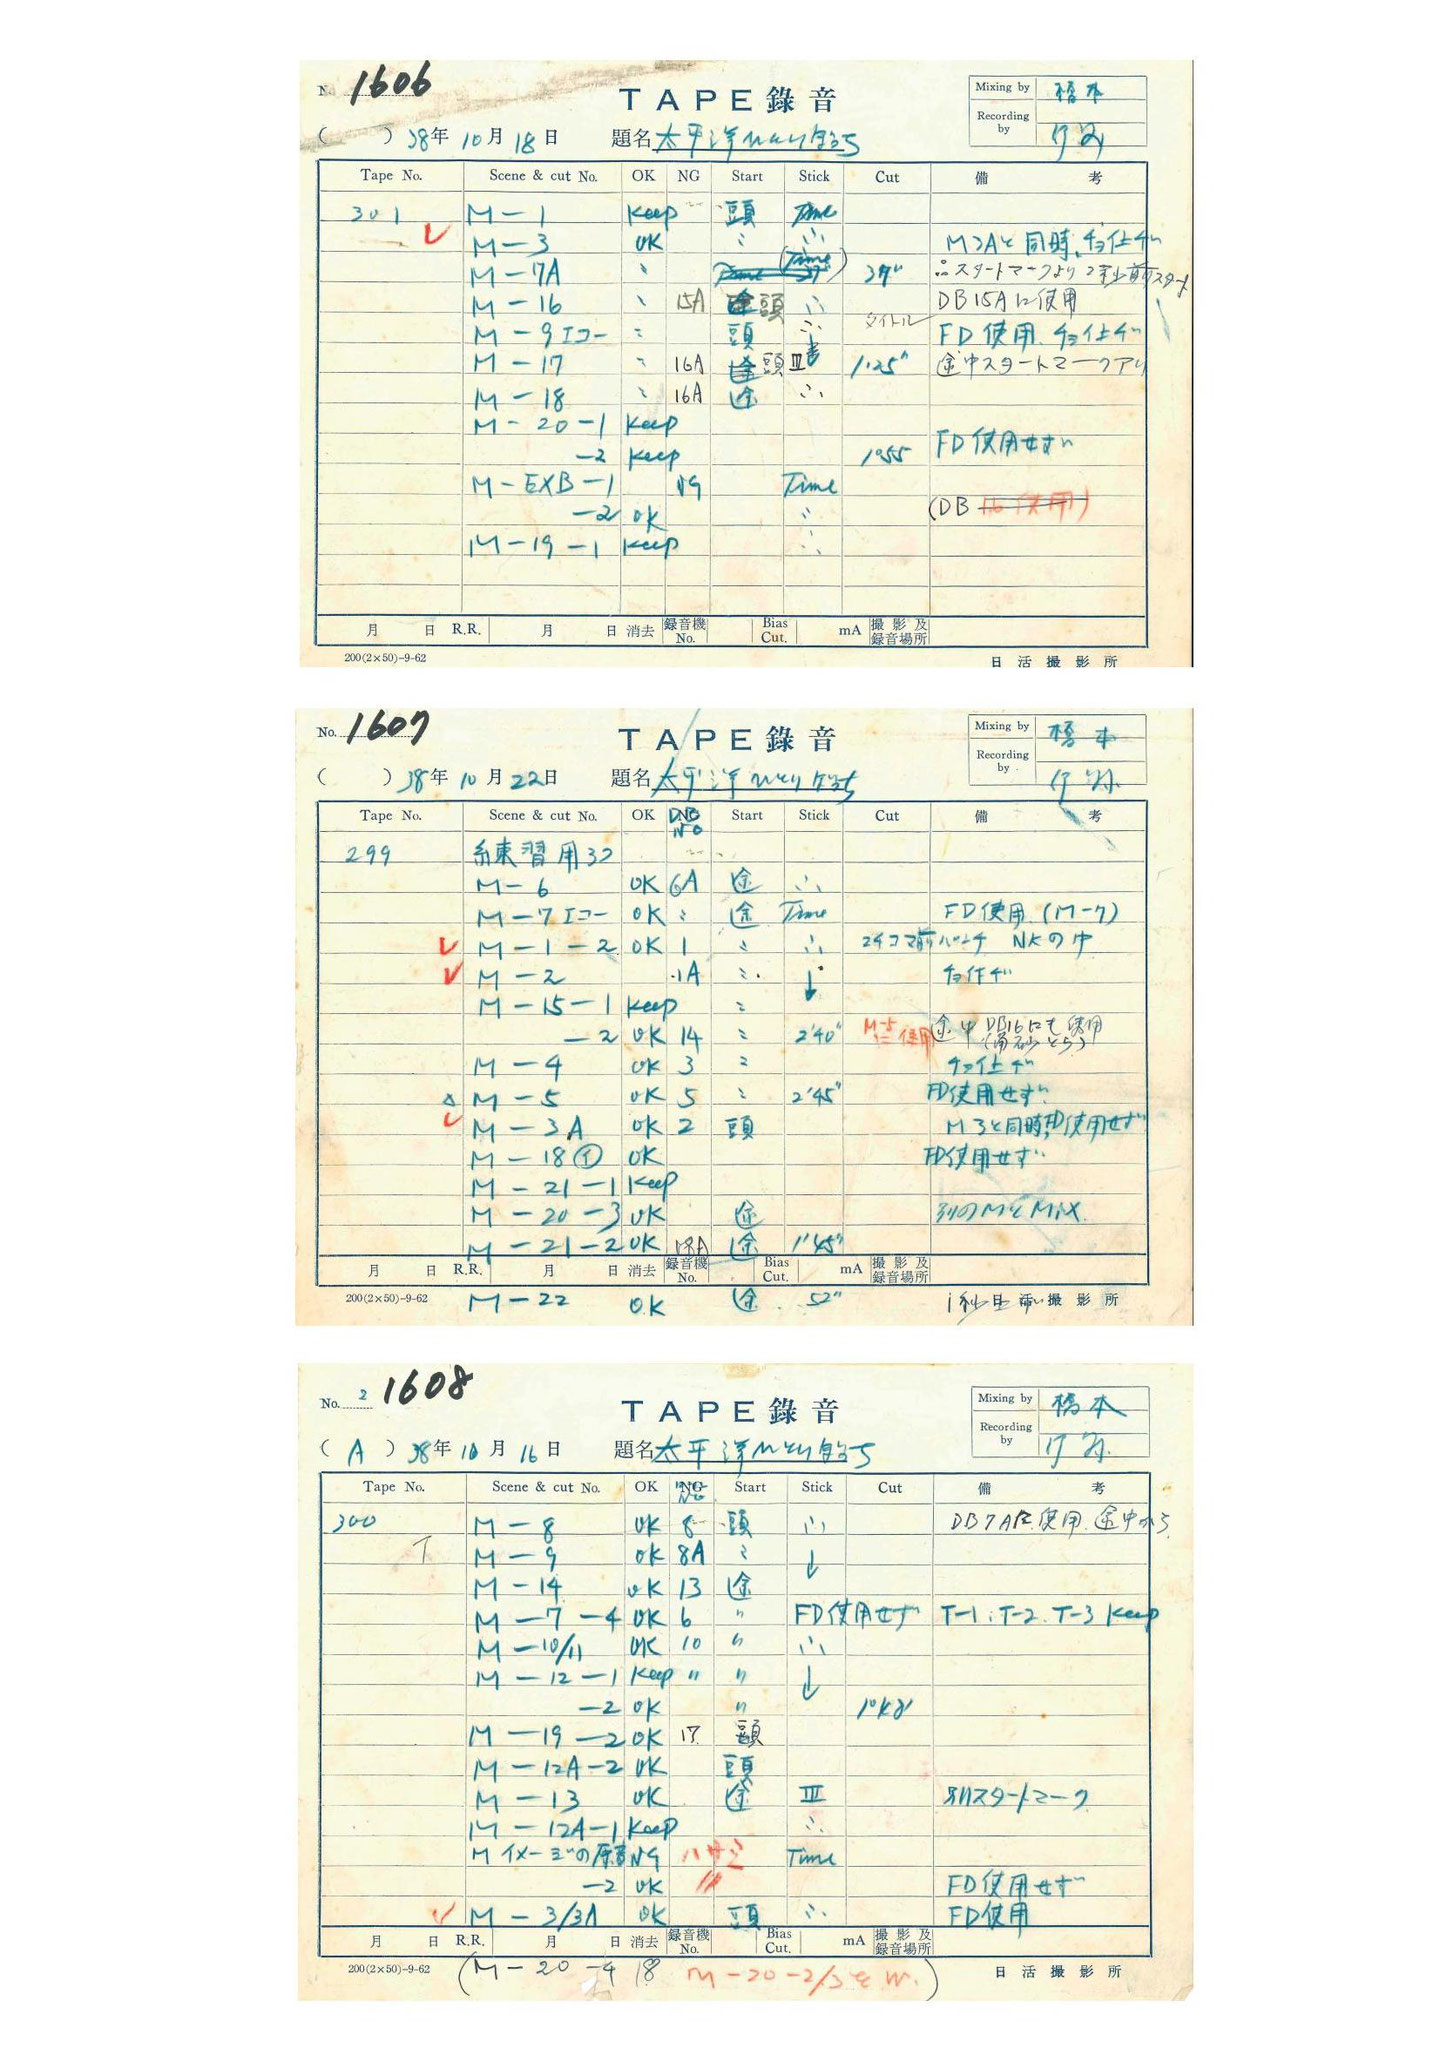 No. 1606
TAPE錄音
Mixing by 橋本
Recording by
( ) 38年 10月 18日 題名 太平洋ひとりぼっち
Tape No. Scene & cut No. OK NG Start Stick Cut 備考
301 M-1 Keep 頭 Time
M-3 OK 〃 〃 M3Aと同時、チョイ上ゲ
M-7A 〃 (Time) 37" スタートマークより2秒前スタート
M-16 〃 15A 頭 〃 DB15Aに使用
M-9エコー 〃 頭 〃 タイトル FD使用 チョイ上ゲ
M-17 〃 16A 頭 III 1'25" 途中スタートマークアリ
M-18 〃 16A 途 〃
M-20-1 Keep
-2 Keep 1'55 FD使用せず
M-EXB-1 NG Time
-2 OK 〃 (DB 16使用)
M-19-1 Keep 〃
月 日 R.R. 月 日 消去 録音機No. Bias Cut. mA 撮影及録音場所
200(2×50)-9-62 日活撮影所
No. 1607
TAPE錄音
Mixing by 橋本
Recording by
( ) 38年 10月 22日 題名 太平洋ひとりぼっち
Tape No. Scene & cut No. OK DB NO Start Stick Cut 備考
299 練習用3つ
M-6 OK 6A 途 〃
M-7エコー OK 〃 途 Time FD使用 (M-7)
M-1-2 OK 1 〃 〃 24コマ前パンチ NKの中
M-2 1A 〃 ↓
M-15-1 Keep 〃
-2 OK 14 〃 2'40" M-5に使用 途中DB16にも使用
M-4 OK 3 〃 チョイ上ゲ
M-5 OK 5 〃 2'45" FD使用せず
M-3A OK 2 頭 M3と同時、FD使用せず
M-18① OK FD使用せず
M-21-1 Keep
M-20-3 OK 途 別のMとMix
M-21-2 OK 18A 途 1'45"
月 日 R.R. 月 日 消去 録音機No. Bias Cut. mA 撮影及録音場所
M-22 OK 途 52"
200(2×50)-9-62 日活撮影所
No. 2 1608
TAPE錄音
Mixing by 橋本
Recording by
( A ) 38年 10月 16日 題名 太平洋ひとりぼっち
Tape No. Scene & cut No. OK NG Start Stick Cut 備考
300 M-8 OK 8 頭 〃 DB7Aに使用 途中から
T M-9 OK 8A 〃 ↓
M-14 OK 13 途
M-7-4 OK 6 〃 FD使用せず T-1, T-2, T-3 Keep
M-10/11 OK 10 〃 〃
M-12-1 Keep 〃 〃 ↓
-2 OK 〃
M-19-2 OK 17 頭
M-12A-2 OK 頭
M-13 OK 途 III 別スタートマーク
M-12A-1 Keep 〃
Mイメージの原音 NG ハサミ Time
-2 OK 〃 FD使用せず
M-3/3A OK 頭 〃 FD使用
月 日 R.R. 月 日 消去 録音機No. Bias Cut. mA 撮影及録音場所
200(2×50)-9-62 日活撮影所
(M-20-4 18 M-20-2/3と W.)